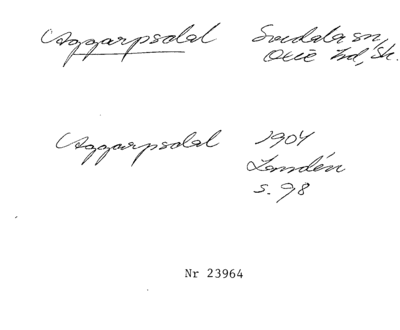 Aggarpsdal Svedala sn,
Oxie hd, Sk.
Aggarpsdal 1904
Landén
s. 98
Nr 23964